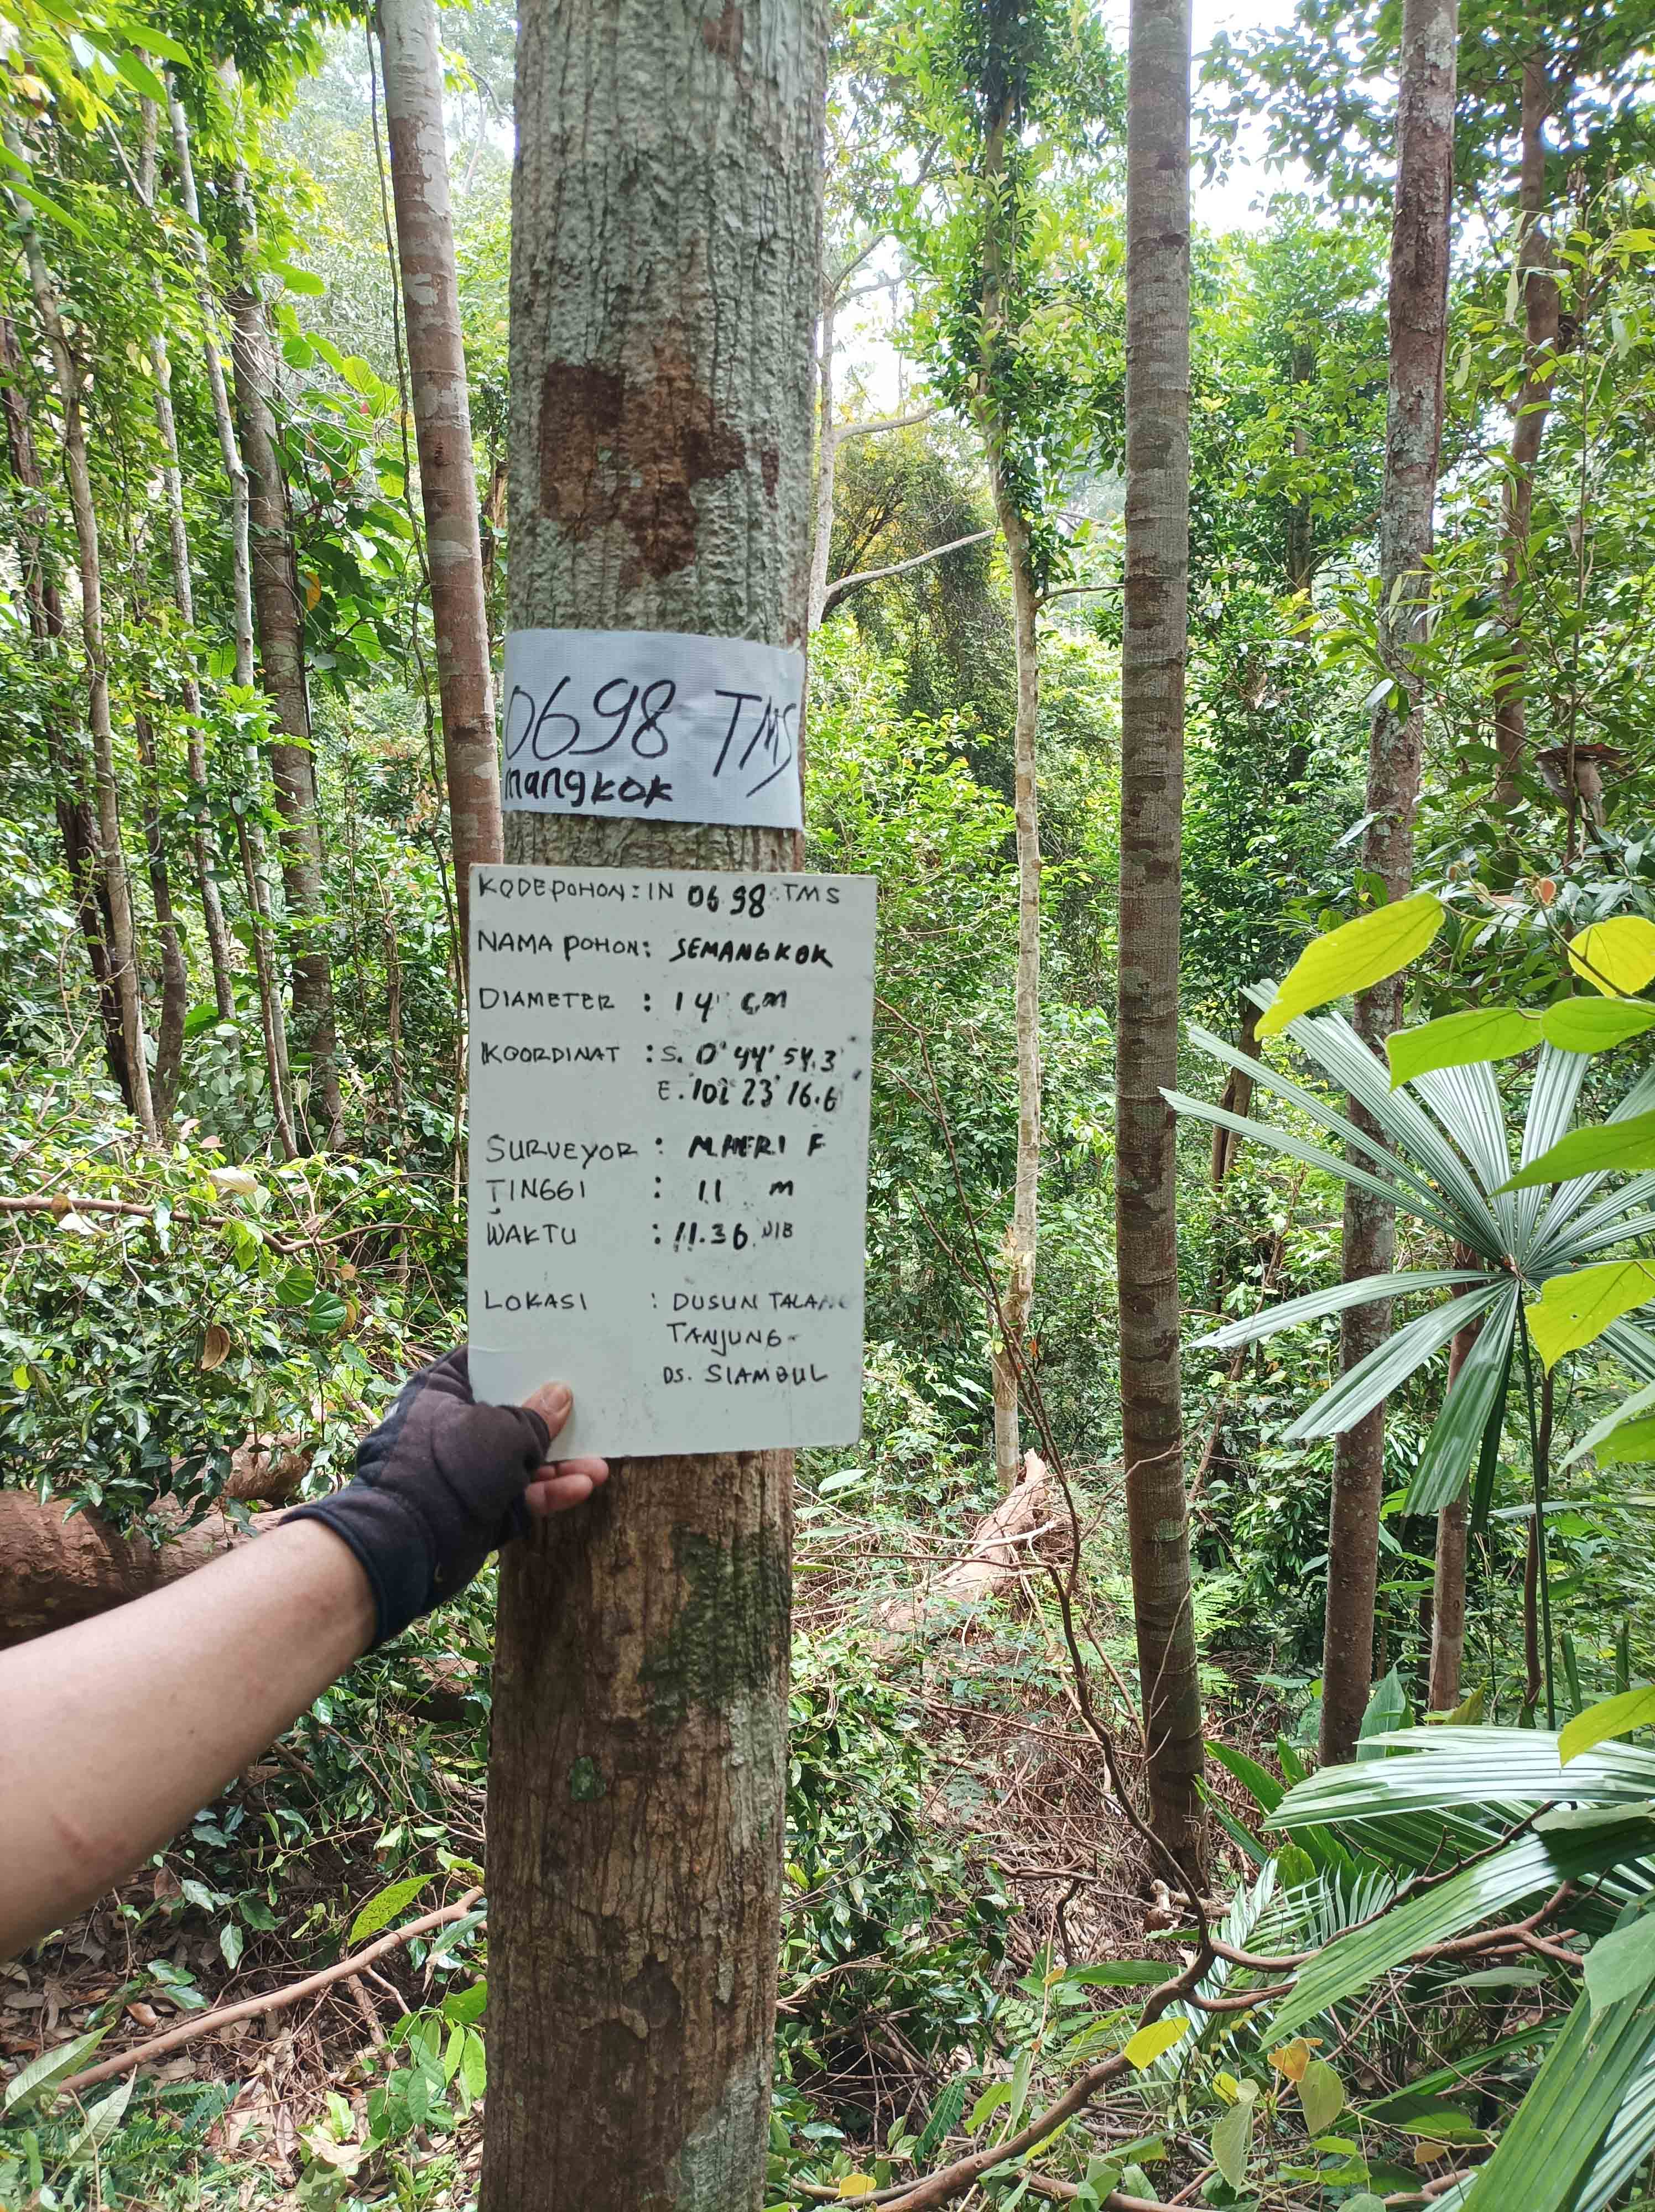 0698 TMS
mangkok
KODE POHON : IN 0698 TMS
NAMA POHON : SEMANGKOK
DIAMETER : 14 CM
KOORDINAT : S. 0° 44' 54.3
E. 102 23' 16.6
SURVEYOR : M.HERI F
TINGGI : 11 m
WAKTU : 11.36 WIB
LOKASI : DUSUN TALANG
TANJUNG
DS. SIAMBUL